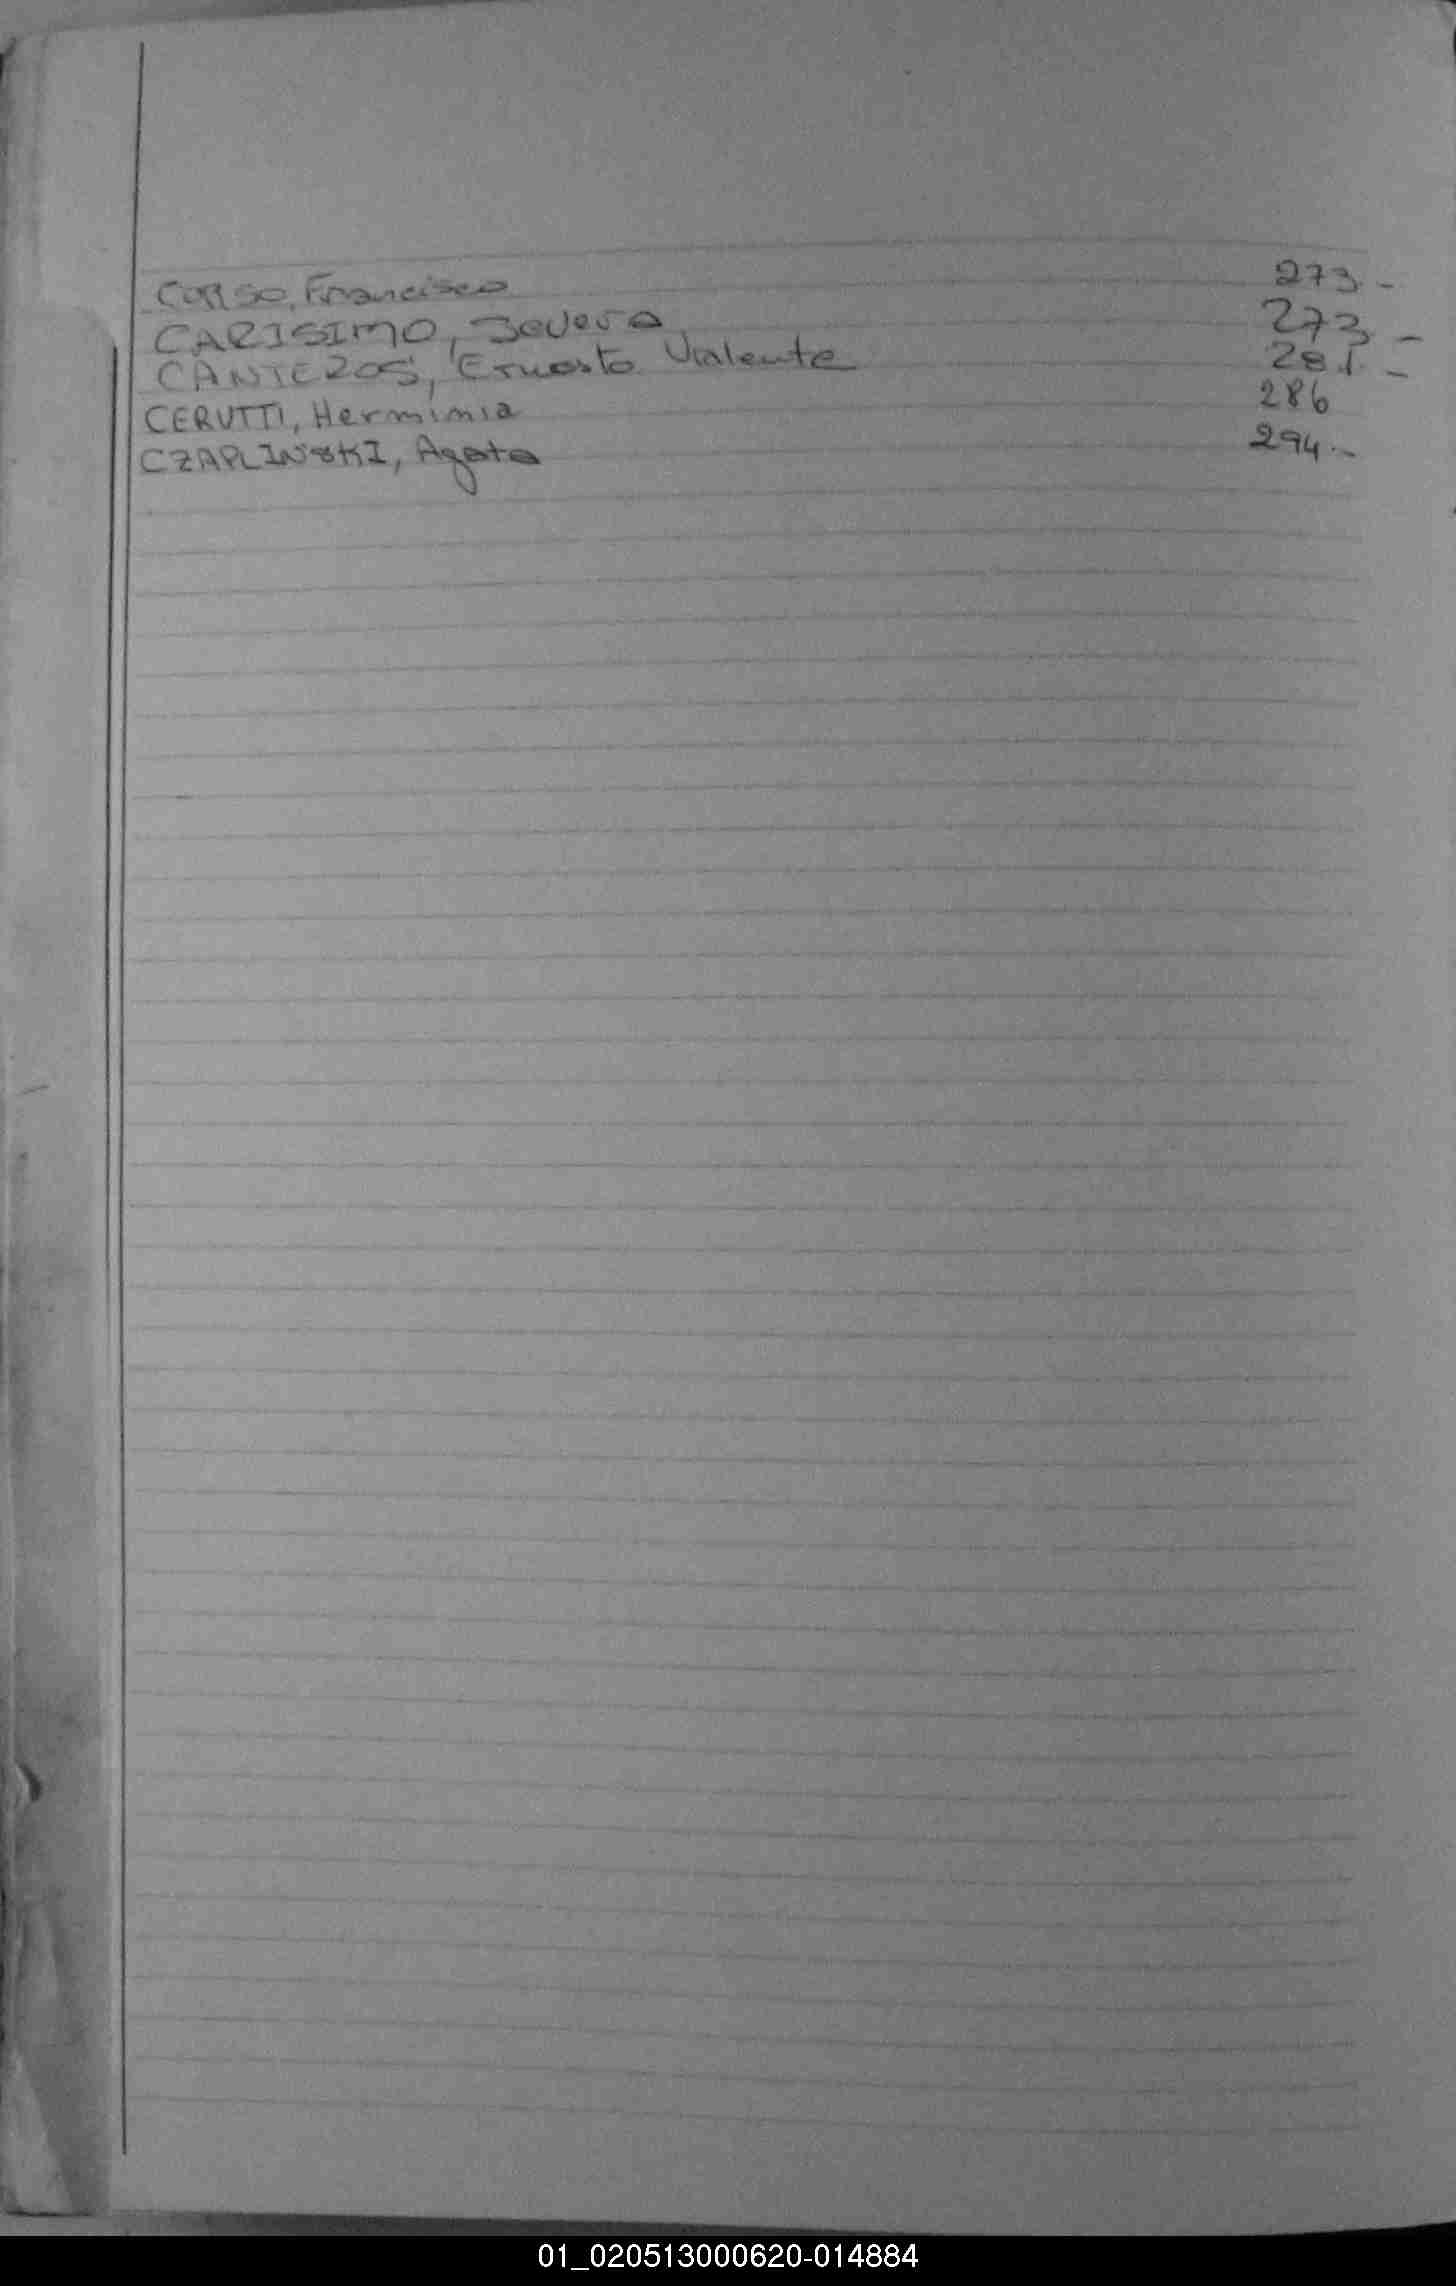 CORSO, Francisco 273.-
CARISIMO, Severo 273.-
CANTEROS, Ernesto Vialente 281.-
CERUTTI, Herminia 286
CZAPLINSKI, Agata 294.-
01_020513000620-014884